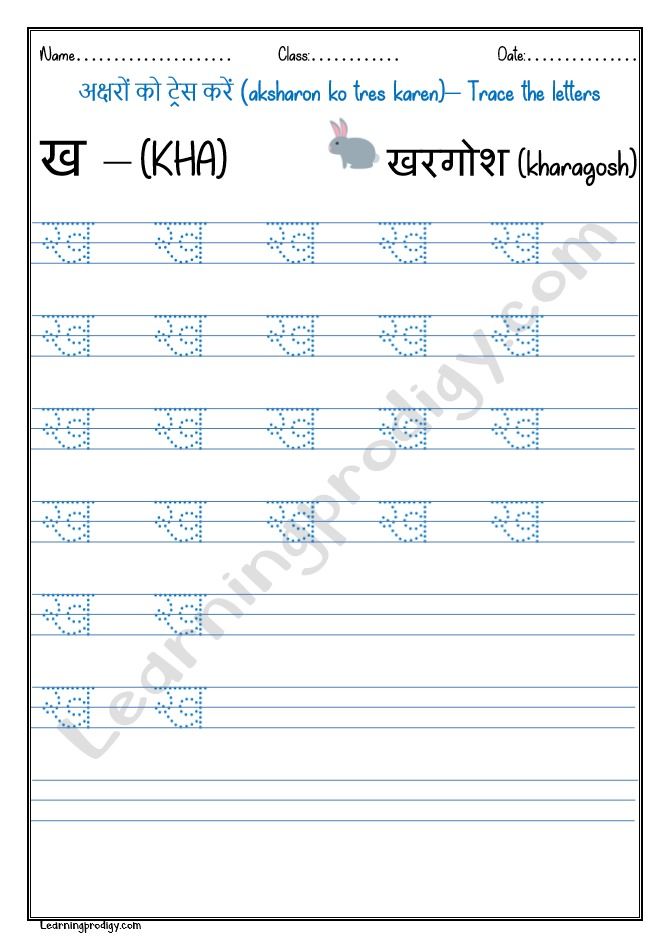 Name..................... Class:............ Date:...............
अक्षरों को ट्रेस करें (aksharon ko tres karen)– Trace the letters
ख – (KHA) खरगोश (kharagosh)
ख ख ख ख ख
ख ख ख ख ख
ख ख ख ख ख
ख ख ख ख ख
ख ख
ख ख
Learningprodigy.com
Learningprodigy.com